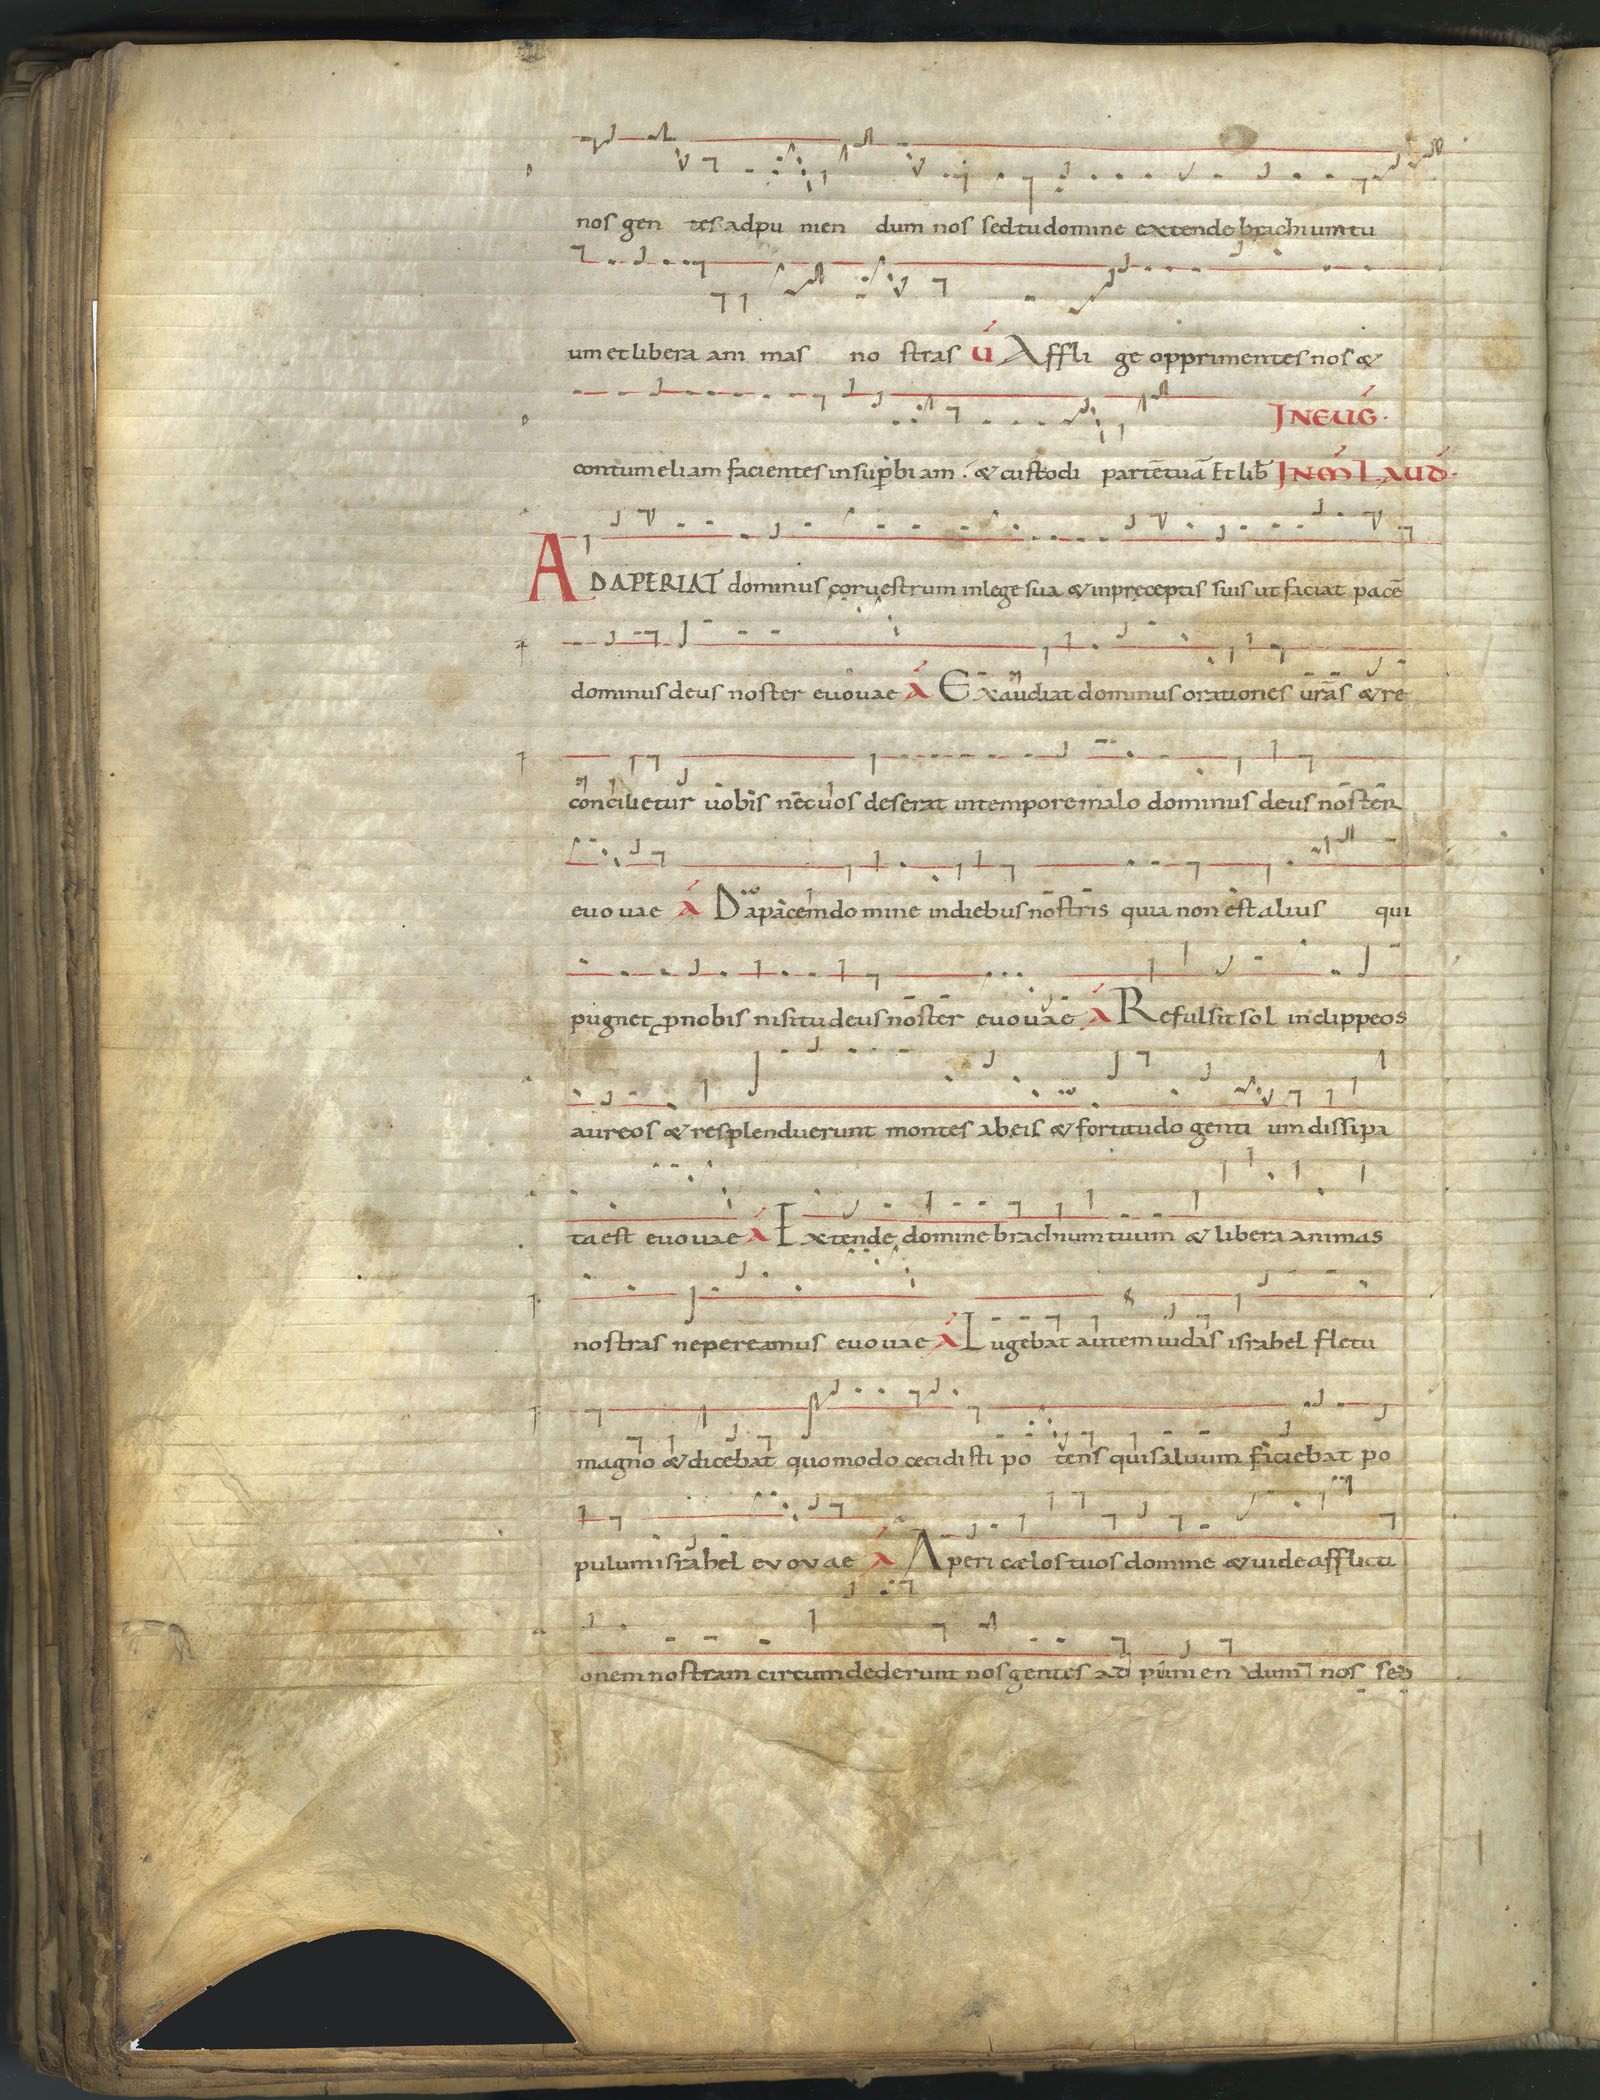 nos gen tes adpu nien dum nos sedtudomine extende brachiumtu
um etlibera ani mas no stras ú Affli ge opprimentes nos &
JNEUG̃·
contumeliam facientes insup̱biam· & custodi partētuā Et lib̄ JNM̃ LAUD̃·
ADAPERIAT dominus coruestrum inlege sua & inpręceptis suis ut faciat pacē
dominus deus noster euouae A Exaudiat dominus orationes ur̄as & re
concilietur uobis necuos deserat intemporemalo dominus deus noster
euouae A Dapacemdomine indiebus nostris quia non est alius qui
pugnet p̱nobis nisitudeus noster euouae A Refulsitsol inclippeos
aureos & resplenduerunt montes abeis & fortitudo genti um dissipa
ta est euouae A Extende domine brachium tuum & libera animas
nostras nepereamus euouae A Lugebat autem iudas israhel fletu
magno & dicebat quomodo cecidisti po tens quisaluum faciebat po
pulum israhel euouae A Aperi caelos tuos domine & uide afflicti
onem nostram circumdederunt nos gentes ad punien dum nos sed